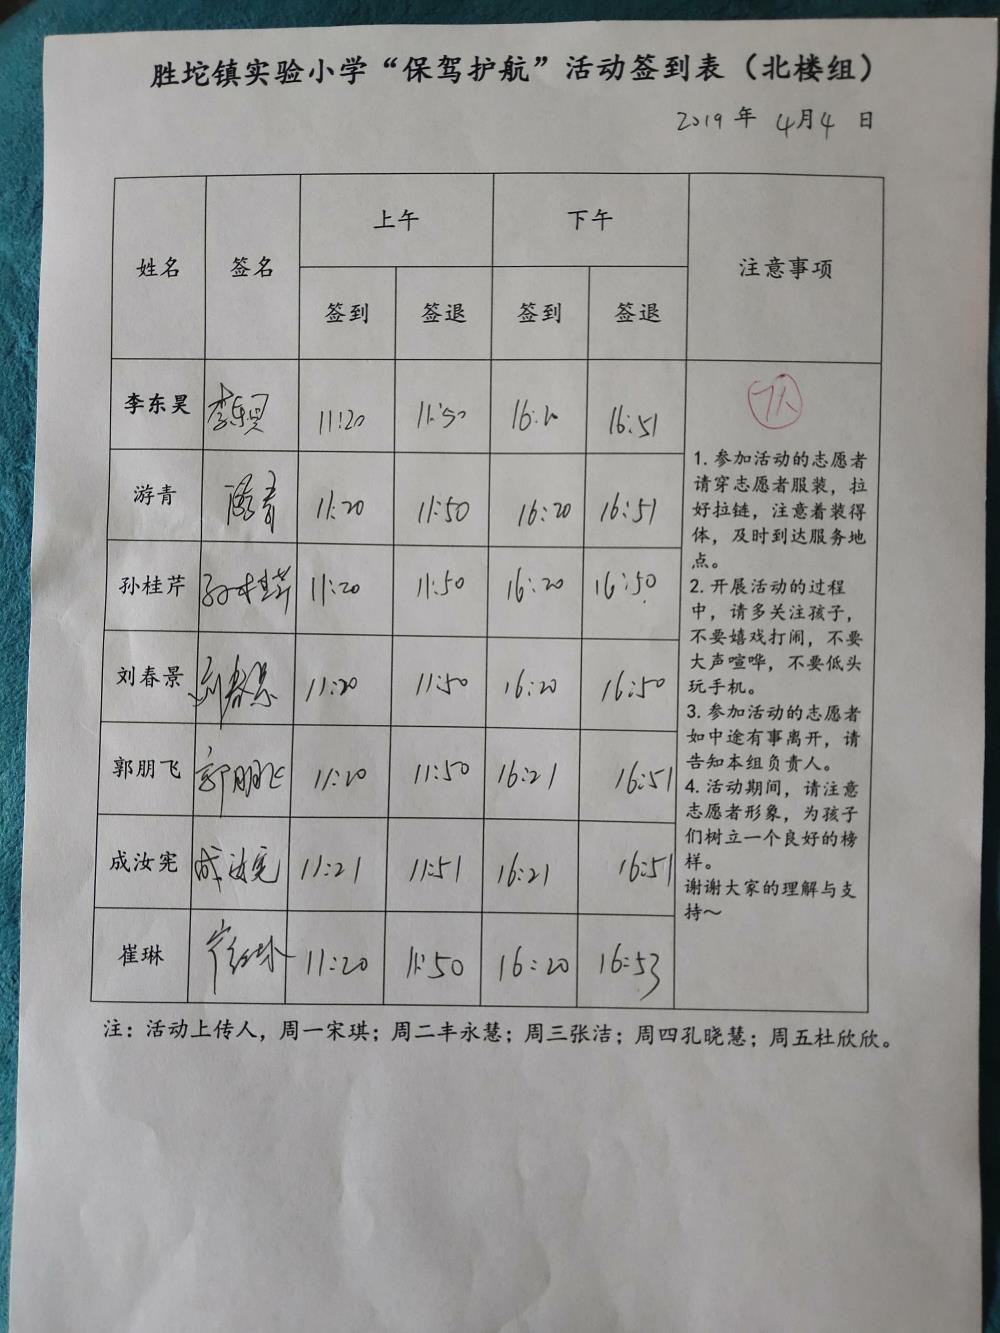 胜坨镇实验小学“保驾护航”活动签到表（北楼组）
2019 年 4月4 日
姓名 签名 上午 下午 注意事项
签到 签退 签到 签退
李东昊 李东昊 11:20 11:50 16:20 16:51
游青 游青 11:20 11:50 16:20 16:51
孙桂芹 孙桂芹 11:20 11:50 16:20 16:50
刘春景 刘春景 11:20 11:50 16:20 16:50
郭朋飞 郭朋飞 11:20 11:50 16:21 16:51
成汝宪 成汝宪 11:21 11:51 16:21 16:51
崔琳 11:20 11:50 16:20 16:53
7人
1. 参加活动的志愿者
请穿志愿者服装，拉
好拉链，注意着装得
体，及时到达服务地
点。
2. 开展活动的过程
中，请多关注孩子，
不要嬉戏打闹，不要
大声喧哗，不要低头
玩手机。
3. 参加活动的志愿者
如中途有事离开，请
告知本组负责人。
4. 活动期间，请注意
志愿者形象，为孩子
们树立一个良好的榜
样。
谢谢大家的理解与支
持～
注：活动上传人，周一宋琪；周二丰永慧；周三张洁；周四孔晓慧；周五杜欣欣。